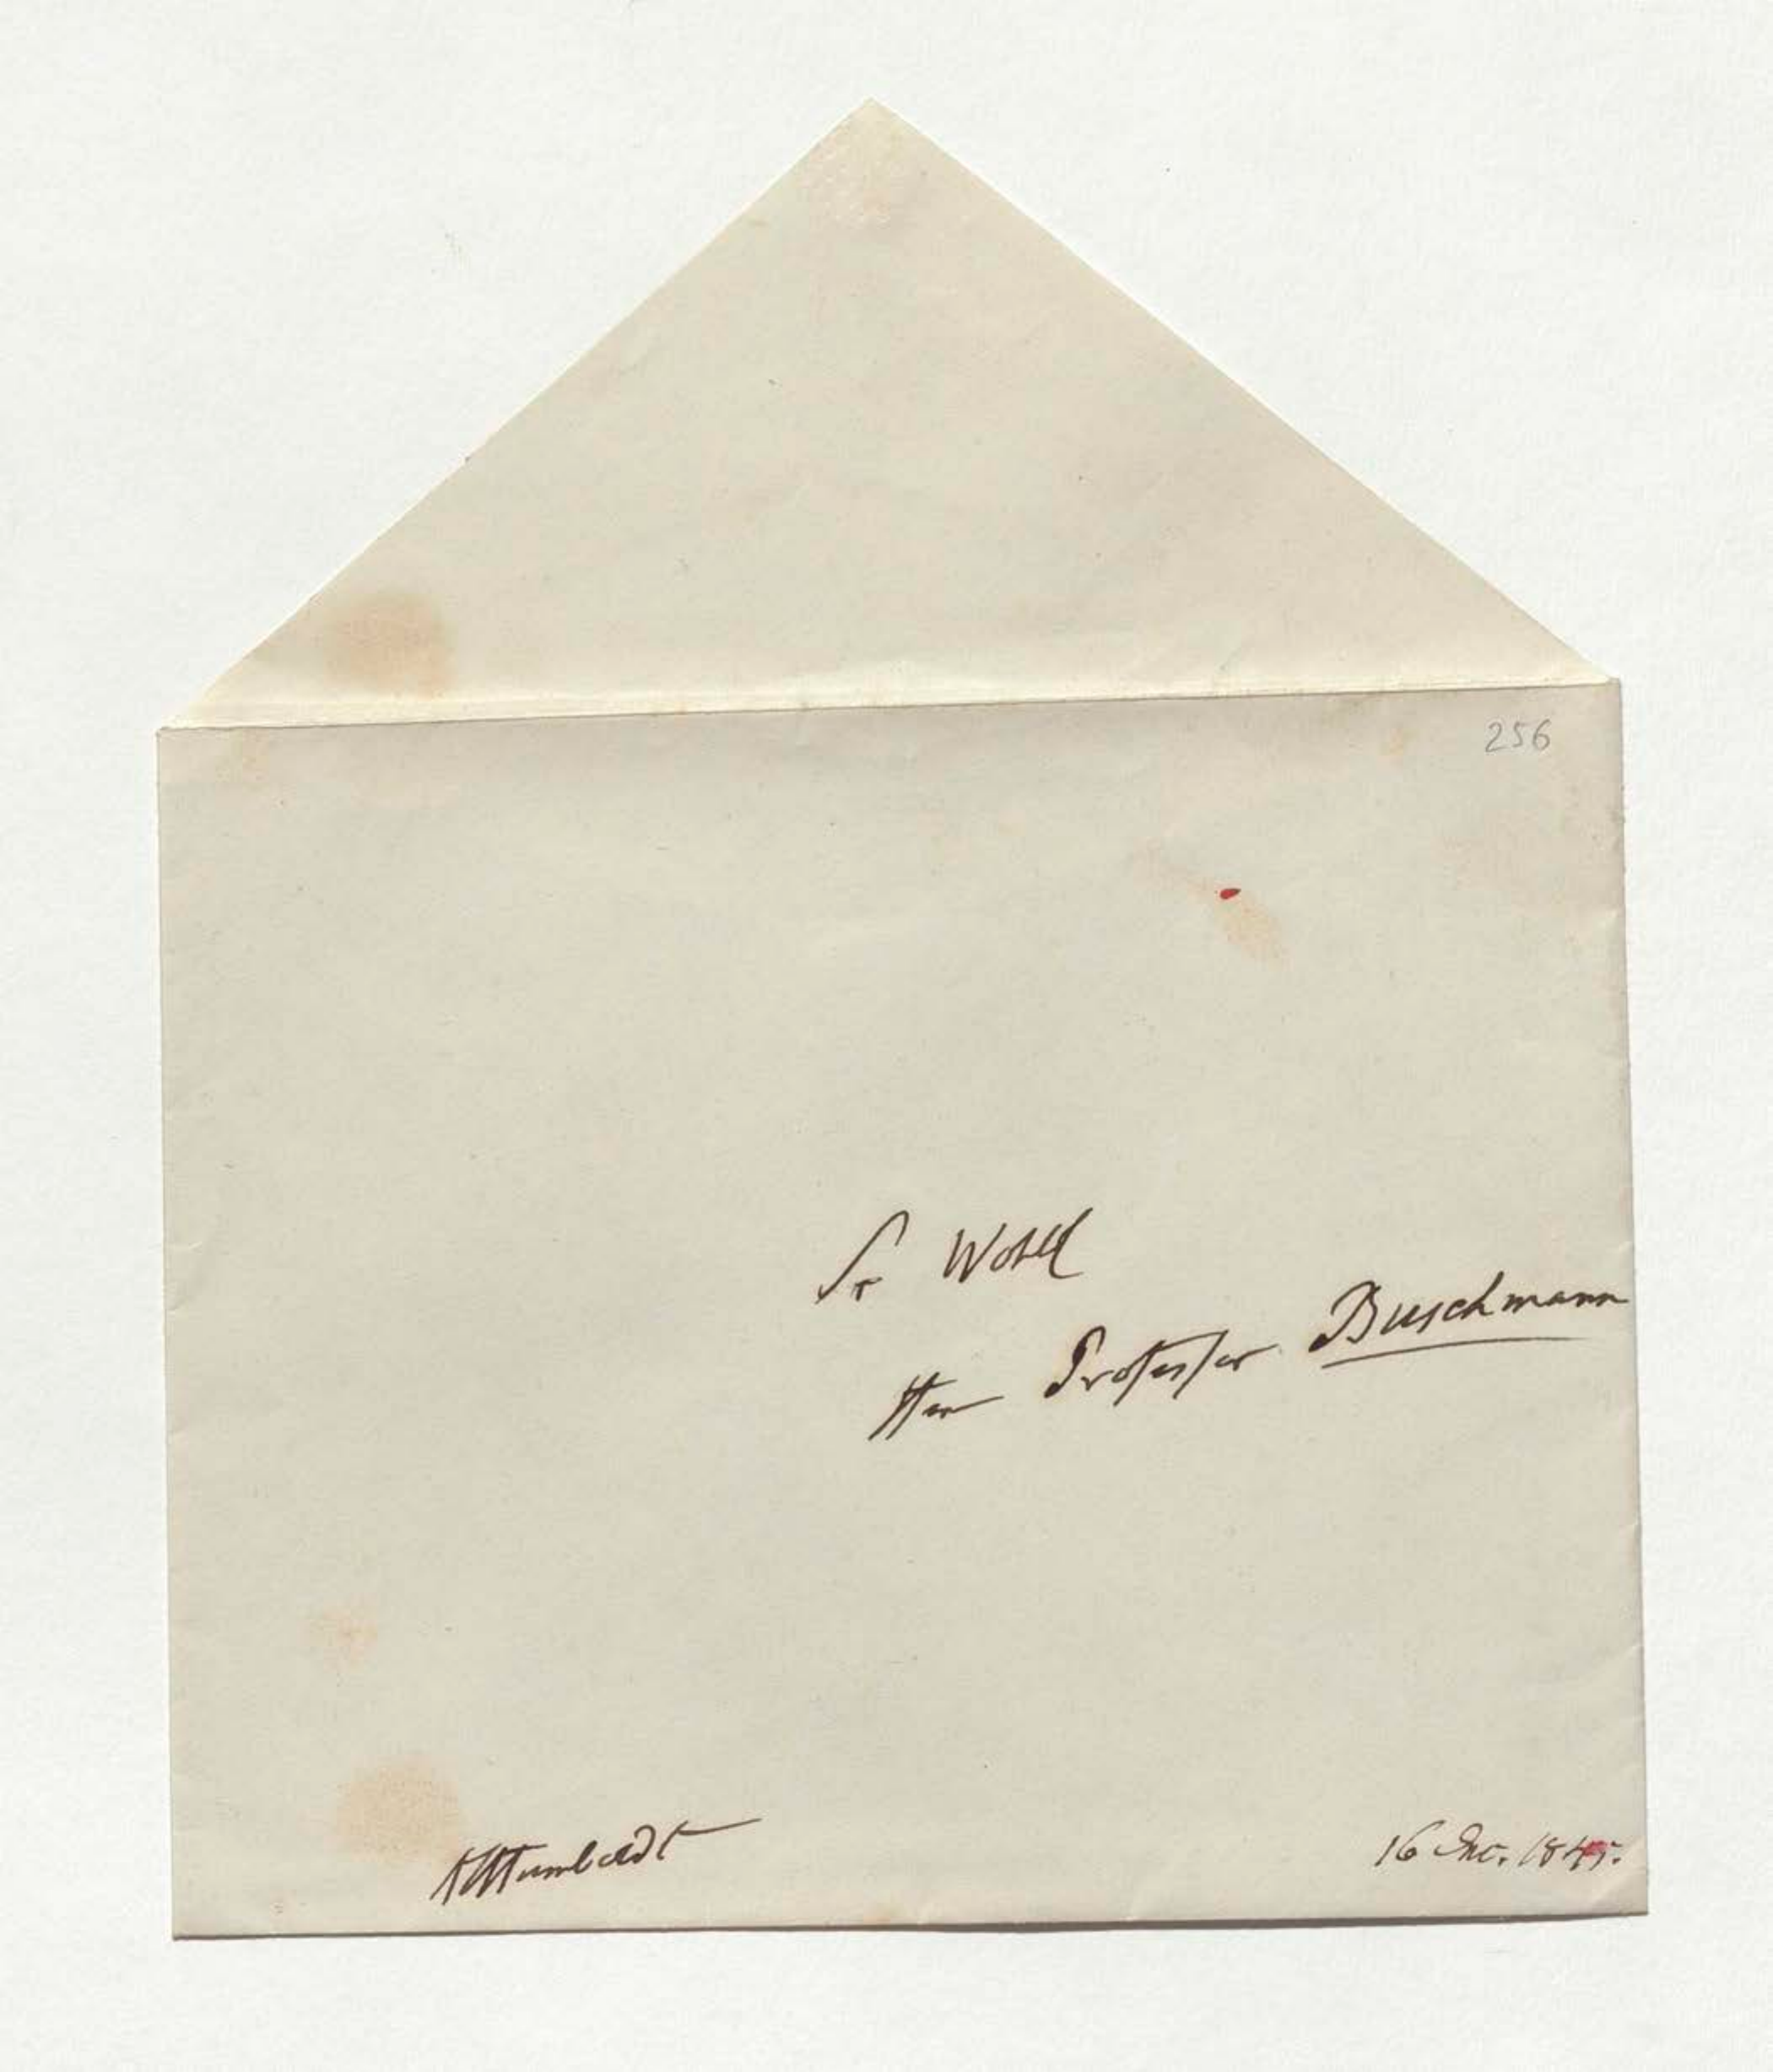 256
Sr Wohl
Herrn Professor Buschmann
AHumboldt
16 Dec. 1845.